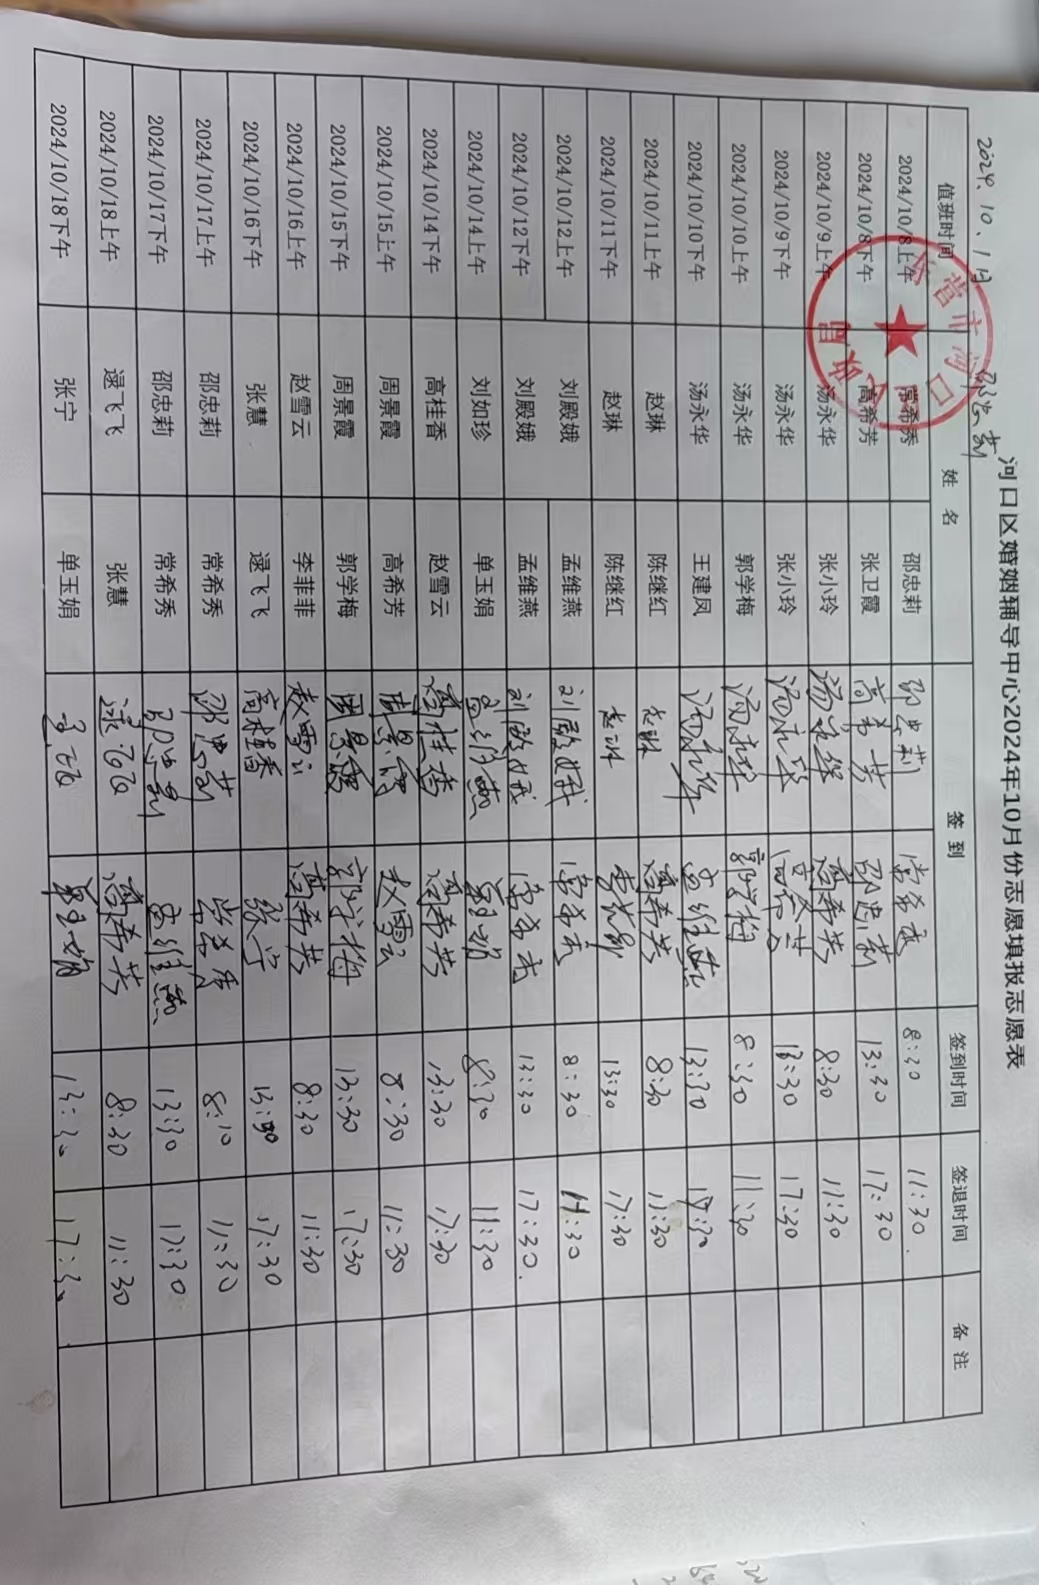 河口区婚姻辅导中心2024年10月份志愿填报志愿表
2024.10.1月
值班时间 姓 名 签 到 签到时间 签退时间 备 注
2024/10/8上午 常希秀 邵忠莉 邵忠莉 常希秀 8:30 11:30.
2024/10/8下午 高希芳 张卫霞 高希芳 邵忠莉 13:30 17:30
2024/10/9上午 汤永华 张小玲 汤永华 高希芳 8:30 11:30
2024/10/9下午 汤永华 张小玲 汤永华 13:30 17:30
2024/10/10上午 汤永华 郭学梅 汤永华 郭学梅 8:30 11:30
2024/10/10下午 汤永华 王建凤 汤永华 孟维燕 13:30 17:30
2024/10/11上午 赵琳 陈继红 赵琳 高希芳 8:30 11:30
2024/10/11下午 赵琳 陈继红 赵琳 13:30 17:30
2024/10/12上午 刘殿娥 孟维燕 刘殿娥 8:30 11:30
2024/10/12下午 刘殿娥 孟维燕 刘殿娥 13:30 17:30.
2024/10/14上午 刘如珍 单玉娟 孟维燕 单玉娟 8:30 11:30
2024/10/14下午 高桂香 赵雪云 高桂香 高希芳 13:30 17:30
2024/10/15上午 周景霞 高希芳 周景霞 赵雪云 8:30 11:30
2024/10/15下午 周景霞 郭学梅 周景霞 郭学梅 13:30 17:30
2024/10/16上午 赵雪云 李菲菲 赵雪云 高希芳 8:30 11:30
2024/10/16下午 张慧 逯飞飞 高桂香 张宁 13:30 17:30
2024/10/17上午 邵忠莉 常希秀 邵忠莉 常希秀 8:10 11:30
2024/10/17下午 邵忠莉 常希秀 邵忠莉 孟维燕 13:30 17:30
2024/10/18上午 逯飞飞 张慧 逯飞飞 高希芳 8:30 11:30
2024/10/18下午 张宁 单玉娟 单玉娟 13:30 17:30